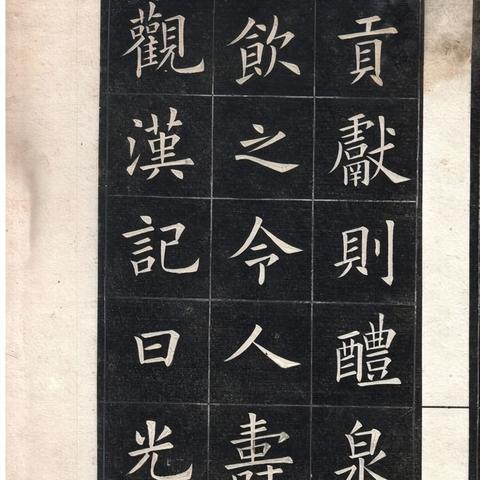 貢獻則醴泉
飲之令人壽
觀漢記曰光